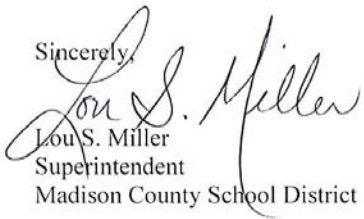 Sincerely,
Lou S. Miller
Lou S. Miller
Superintendent
Madison County School District